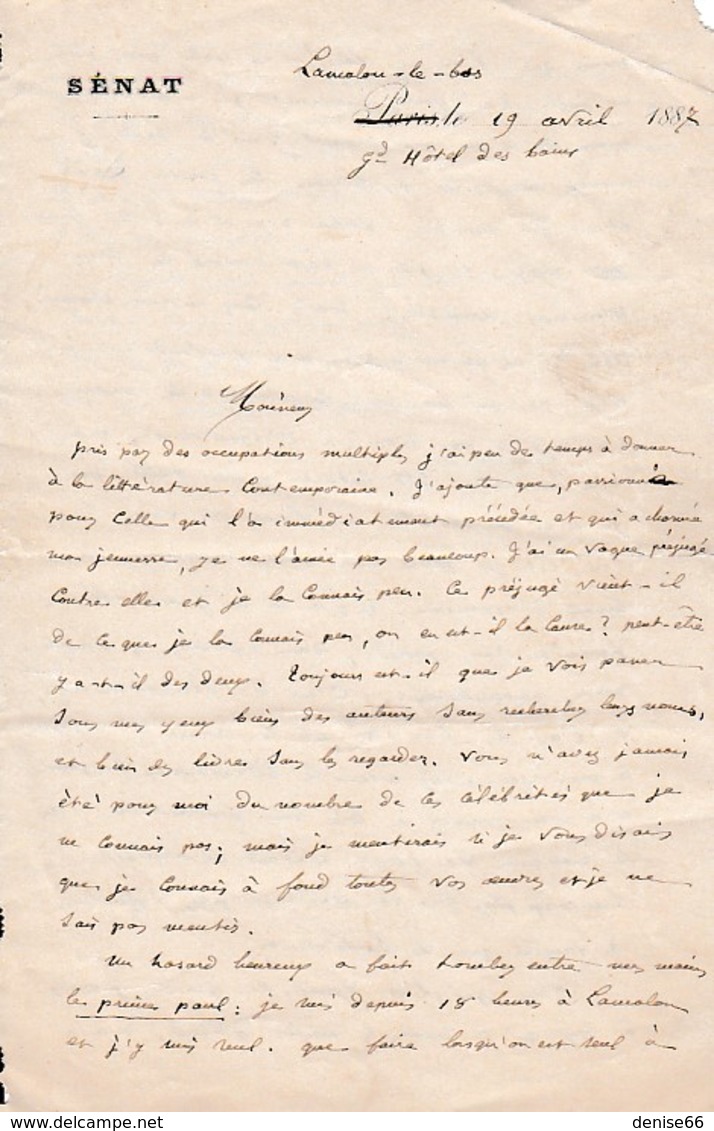 Lamalou-le-bas
SÉNAT
Paris, le 19 avril 1887
gd Hôtel des bains
Monsieur
pris par des occupations multiples j'ai peu de temps à donner
à la littérature contemporaine. J'ajoute que, passionné
pour celle qui l'a immédiatement précédée et qui a charmé
ma jeunesse, je ne l'aime pas beaucoup. J'ai un vague préjugé
contre elle et je la connais peu. Ce préjugé vient-il
de ce que je la connais peu, ou en est-il la cause? peut-être
y a-t-il des deux. Toujours est-il que je vois passer
sous mes yeux bien des auteurs sans rechercher leurs noms,
et bien des livres sans les regarder. Vous n'avez jamais
été pour moi du nombre de ces célébrités que je
ne connais pas; mais je mentirais si je vous disais
que je connais à fond toutes vos œuvres et je ne
sais pas mentir.
Un hasard heureux a fait tomber entre mes mains
le prince paul: je suis depuis 18 heures à Lamalou
et j'y suis seul. que faire lorsqu'on est seul à
denise66